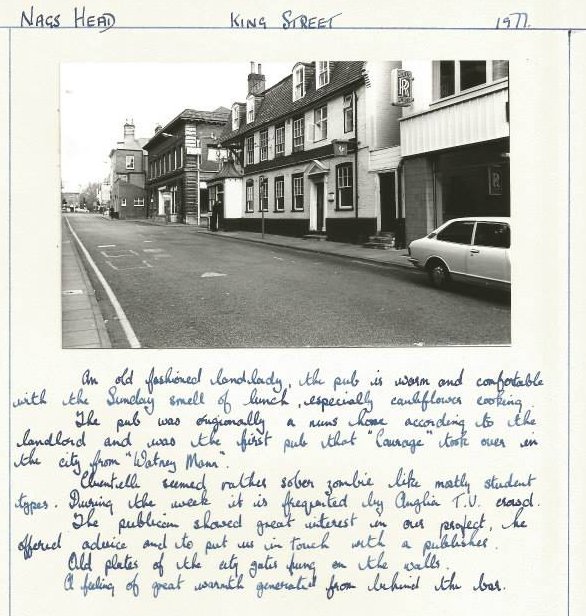 NAGS HEAD KING STREET 1977.
R
R
An old fashioned landlady, the pub is warm and comfortable
with the Sunday smell of lunch, especially cauliflower cooking.
The pub was origionally a nuns house according to the
landlord and was the first pub that "Courage" took over in
the city from "Watney Mann".
Clientelle seemed rather sober zombie like mostly student
types. During the week it is frequented by Anglia T.V. crowd.
The publican showed great interest in our project, he
offered advice and to put us in touch with a publisher.
Old plates of the city gates hung on the walls.
A feeling of great warmth generated from behind the bar.